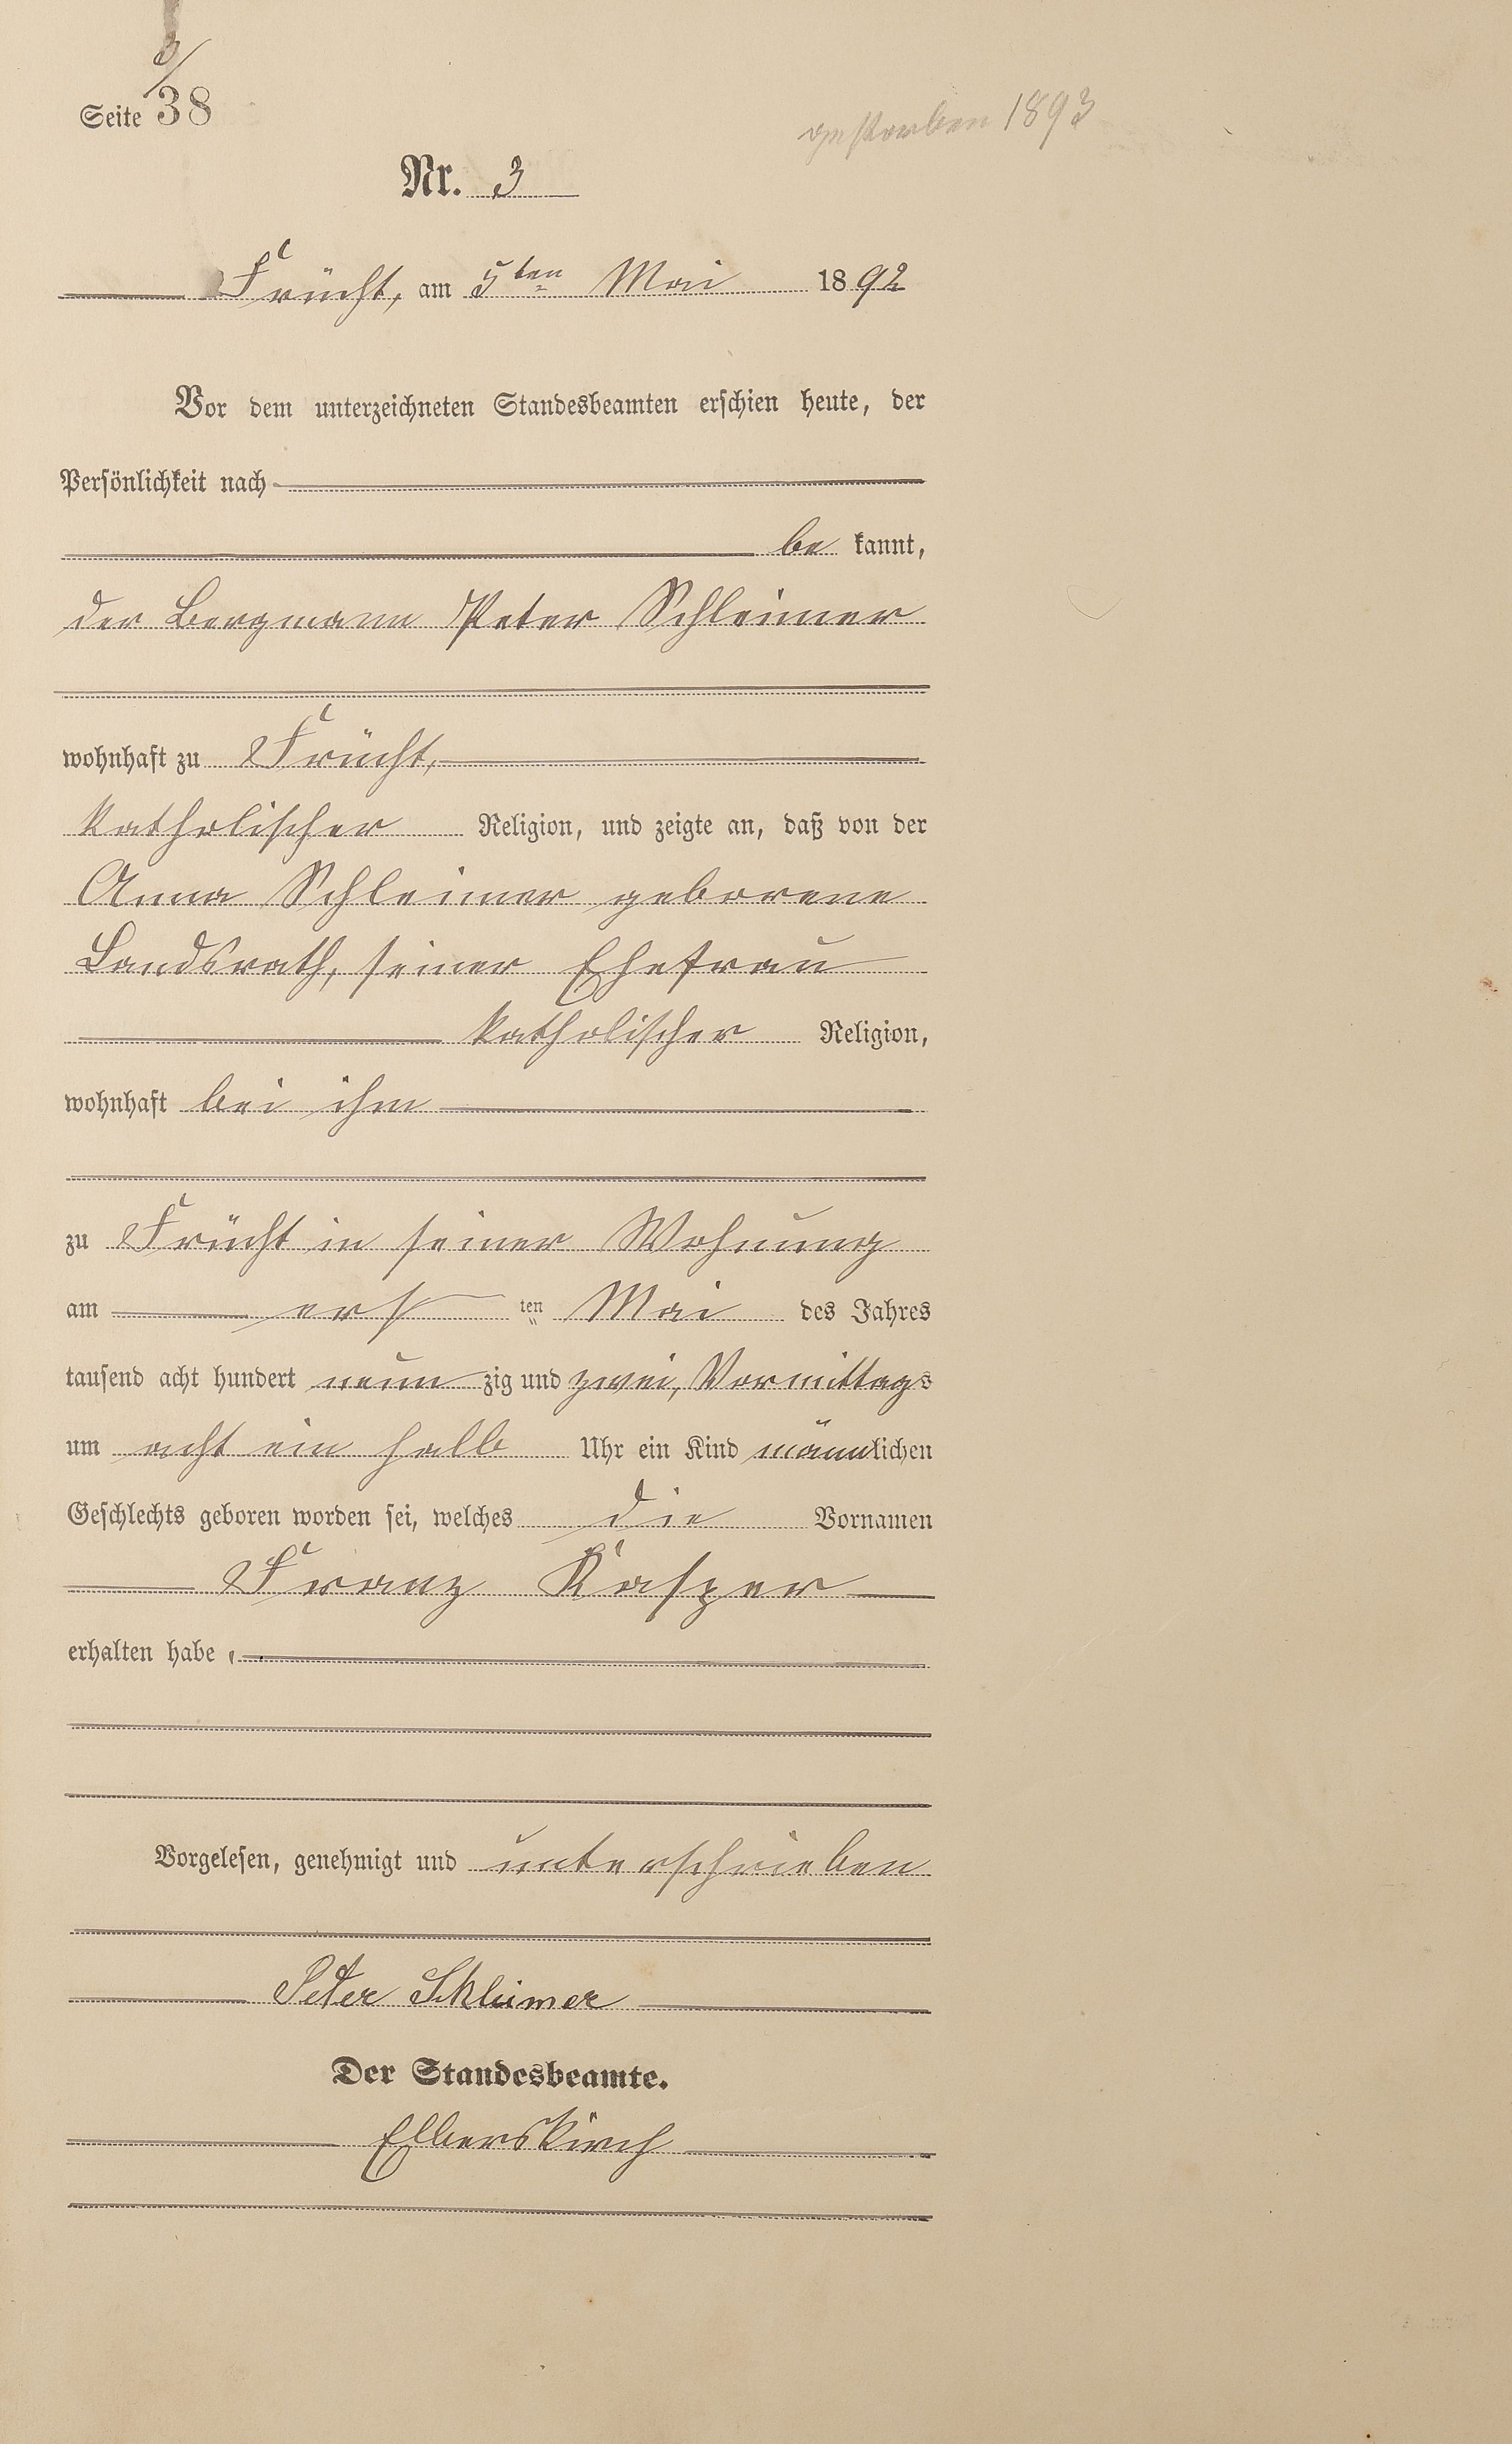 3/
Seite 38
gestorben 1893
Nr. 3
Frücht, am 5ten Mai 1892
Vor dem unterzeichneten Standesbeamten erschien heute, der
Persönlichkeit nach
be kannt,
der Bergmann Peter Schleimer
wohnhaft zu Frücht,
katholischer Religion, und zeigte an, daß von der
Anna Schleimer geborene
Landsrath, seiner Ehefrau
katholischer Religion,
wohnhaft bei ihm
zu Frücht in seiner Wohnung
am erst ten Mai des Jahres
tausend acht hundert neun zig und zwei, Vormittags
um acht ein halb Uhr ein Kind männlichen
Geschlechts geboren worden sei, welches die Vornamen
Franz Kasper
erhalten habe,
Vorgelesen, genehmigt und unterschrieben
Peter Schleimer
Der Standesbeamte.
Elberskirch